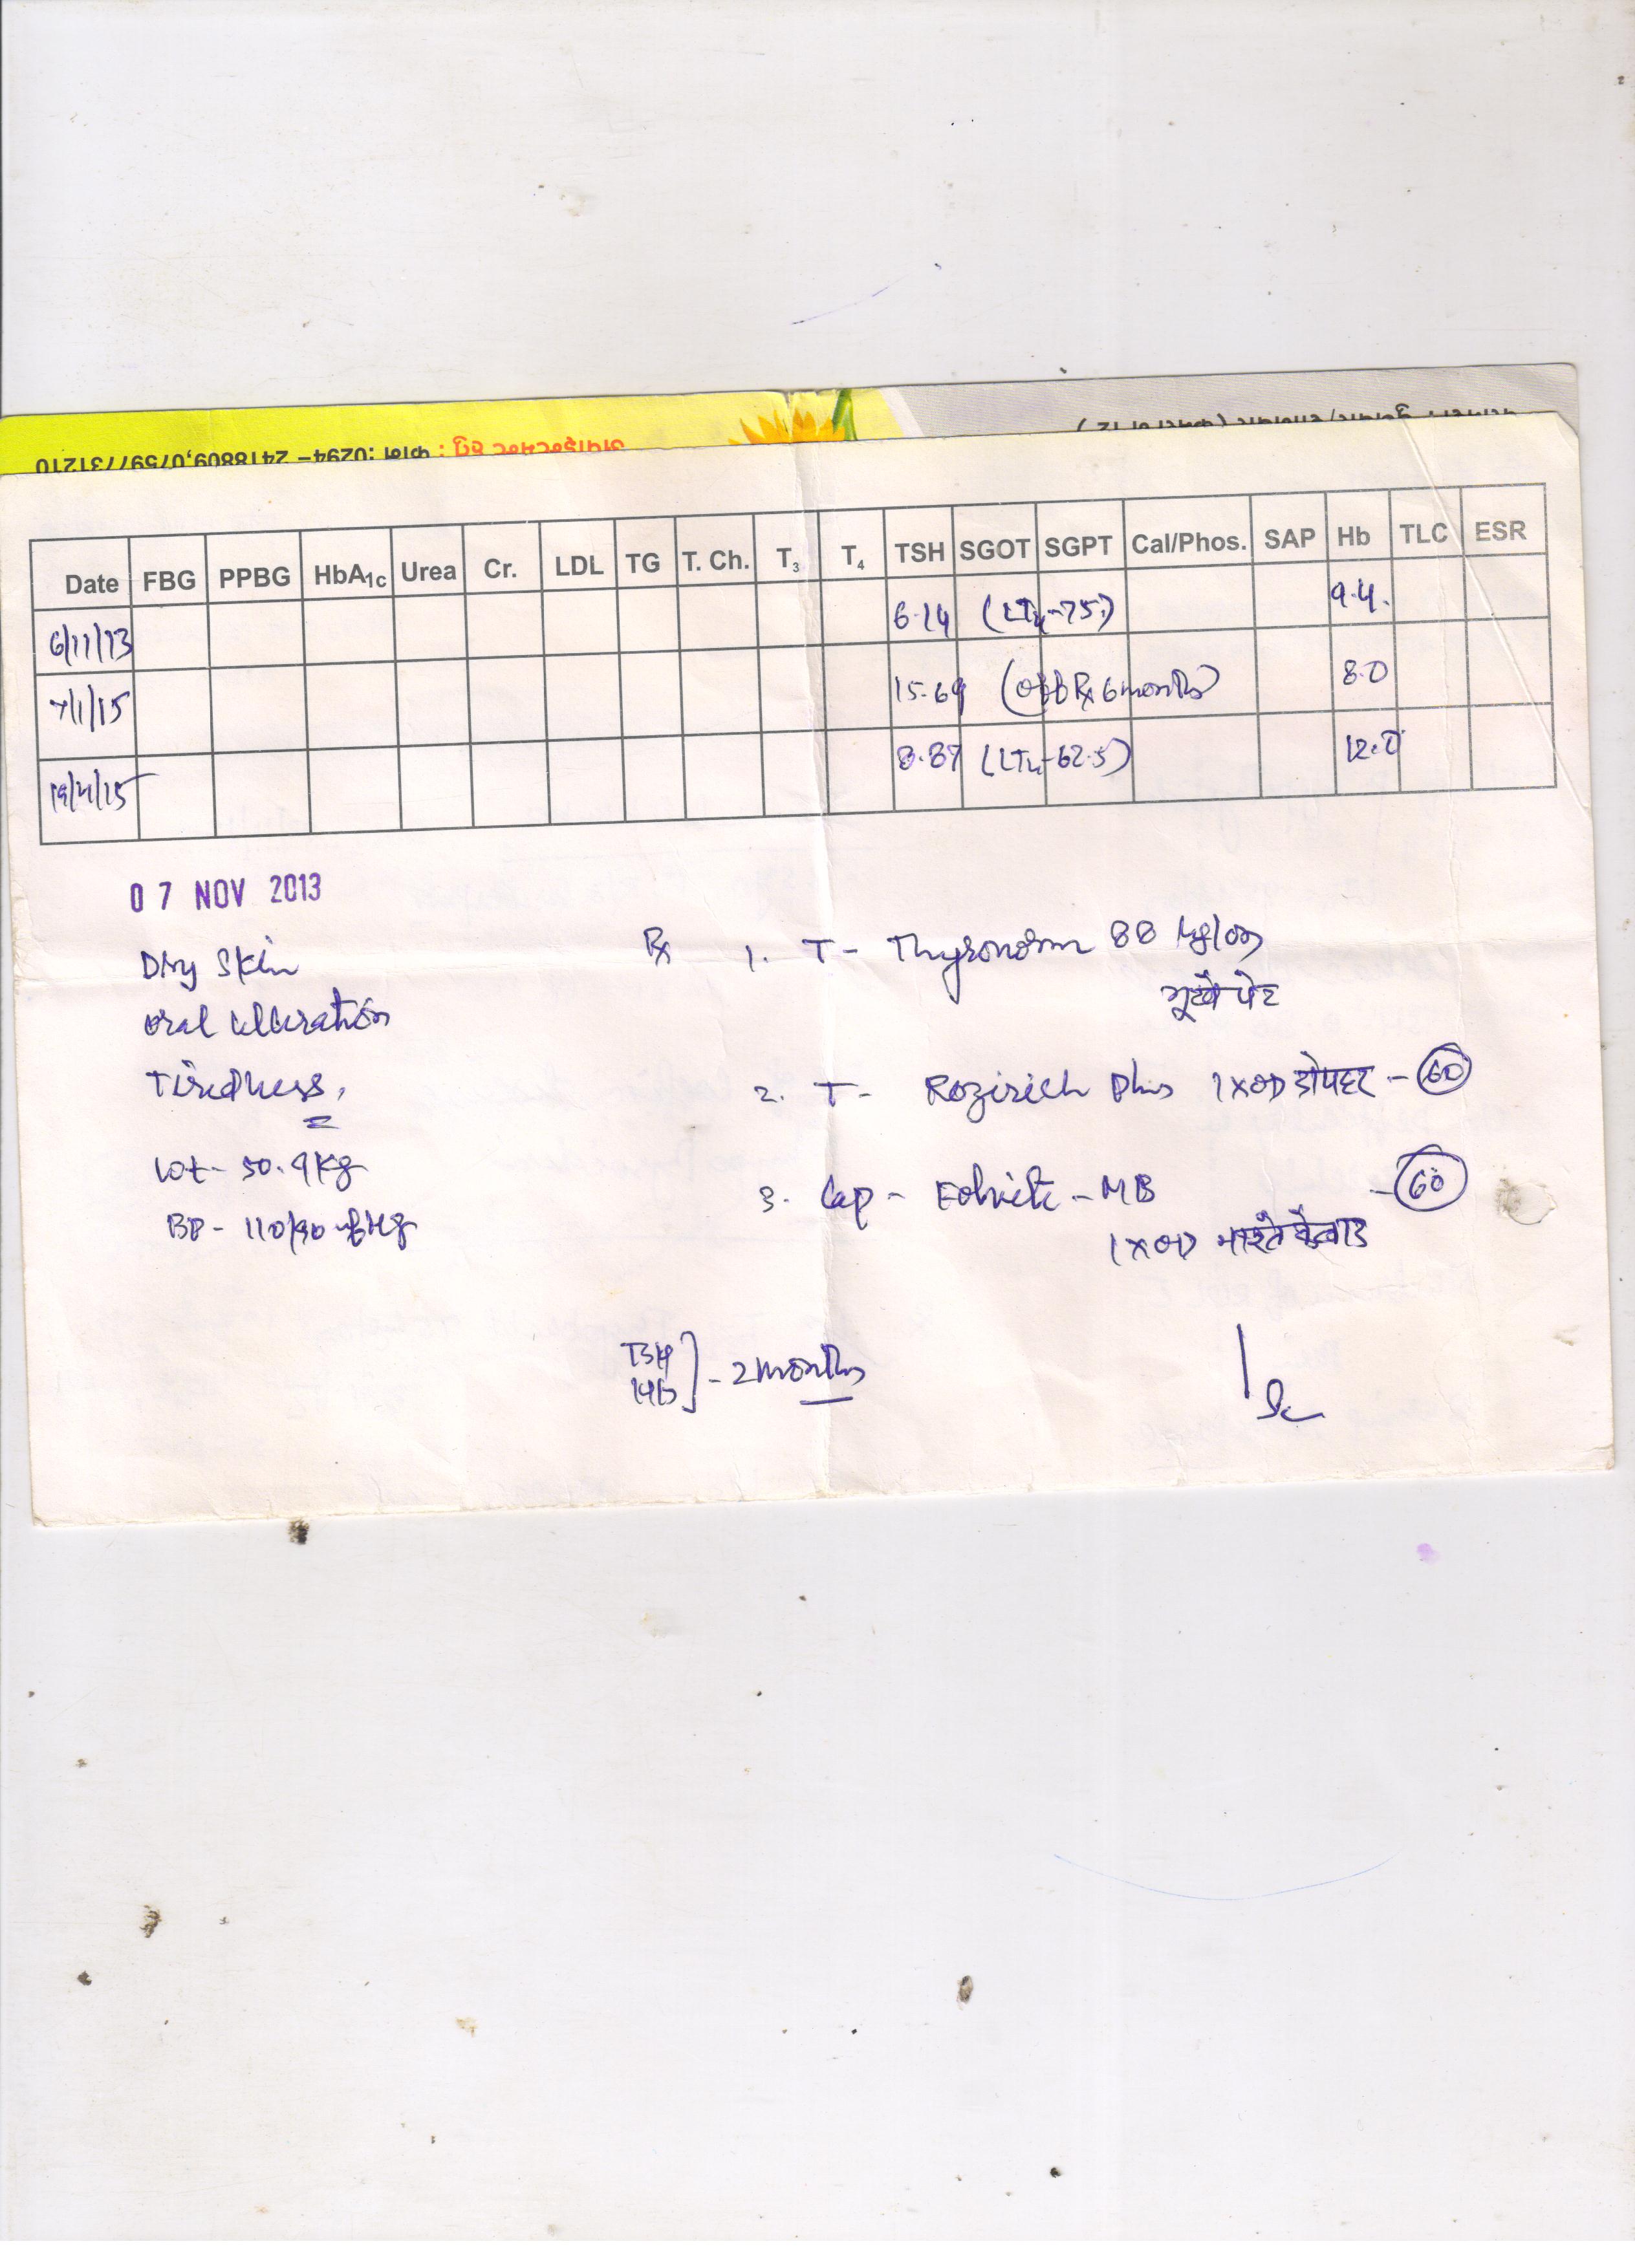 अपाइन्टमेन्ट हेतु : फोन :0294- 2418809,07597731210
Date FBG PPBG HbA1c Urea Cr. LDL TG T. Ch. T3 T4 TSH SGOT SGPT Cal/Phos. SAP Hb TLC ESR
6/11/13 6.14 (LT4-75) 9.4
7/1/15 15.69 (off Rx 6 months) 8.0
19/4/15 8.87 (LT4-62.5) 12.0
07 NOV 2013
Dry Skin
oral ulceration
Tiredness,
wt- 50.9 kg
BP- 110/90
Rx 1. T- Thyronorm 88 μg/OD
भूखे पेट
2. T- Rozirich Plus 1xOD दोपहर - 60
3. Cap - MB - 60
1xOD नाश्ते के बाद
TSH
Hb ] - 2 months